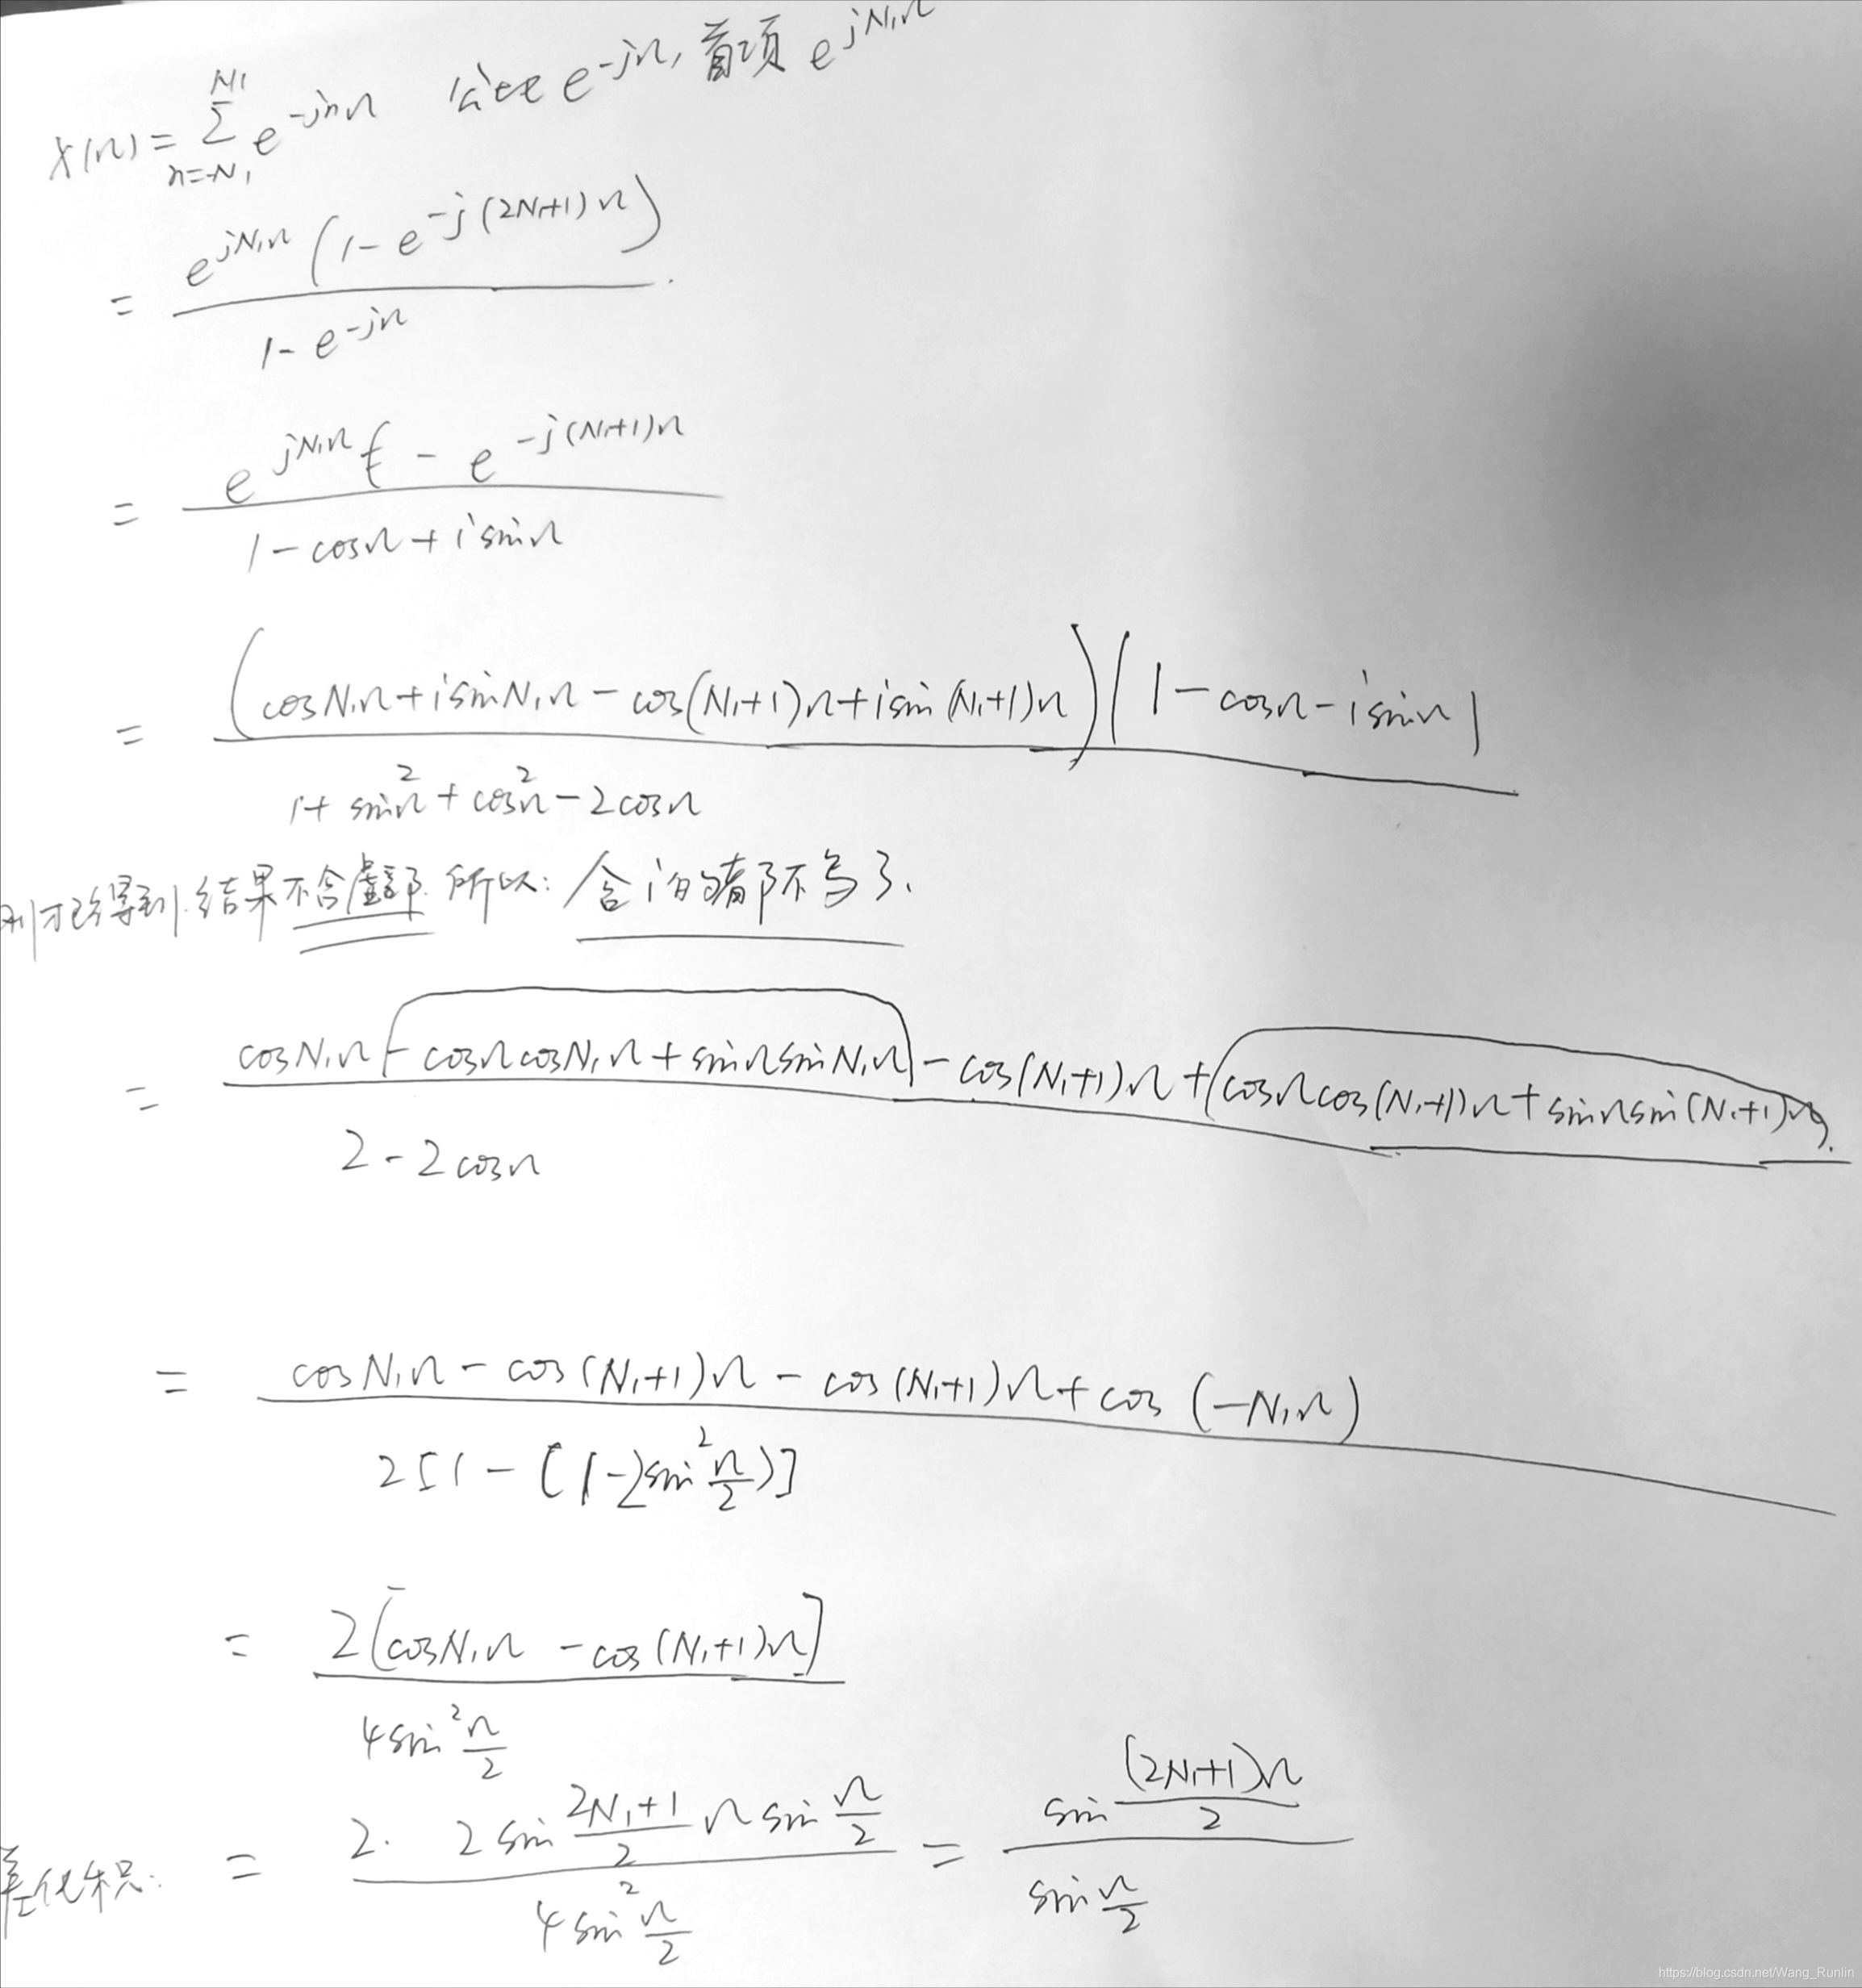 X(Ω) = Σ_{n=-N₁}^{N₁} e^{-jnΩ} 公比 e^{-jΩ}, 首项 e^{jN₁Ω}
= \frac{e^{jN₁Ω}(1-e^{-j(2N₁+1)Ω})}{1-e^{-jΩ}}
= \frac{e^{jN₁Ω} - e^{-j(N₁+1)Ω}}{1-cosΩ+isinΩ}
= \frac{(cosN₁Ω+isinN₁Ω-cos(N₁+1)Ω+isin(N₁+1)Ω)(1-cosΩ-isinΩ)}{1+sin²Ω+cos²Ω-2cosΩ}
刚才已得到结果不含虚部. 所以: 含i的都不写了.
= \frac{cosN₁Ω-cosΩcosN₁Ω+sinΩsinN₁Ω-cos(N₁+1)Ω+(cosΩcos(N₁+1)Ω+sinΩsin(N₁+1)Ω)}{2-2cosΩ}
= \frac{cosN₁Ω-cos(N₁+1)Ω-cos(N₁+1)Ω+cos(-N₁Ω)}{2[1-(1-2sin²\frac{Ω}{2})]}
= \frac{2[cosN₁Ω-cos(N₁+1)Ω]}{4sin²\frac{Ω}{2}}
差化积: = \frac{2·2sin\frac{2N₁+1}{2}Ωsin\frac{Ω}{2}}{4sin²\frac{Ω}{2}} = \frac{sin\frac{(2N₁+1)Ω}{2}}{sin\frac{Ω}{2}}
https://blog.csdn.net/Wang_Runlin